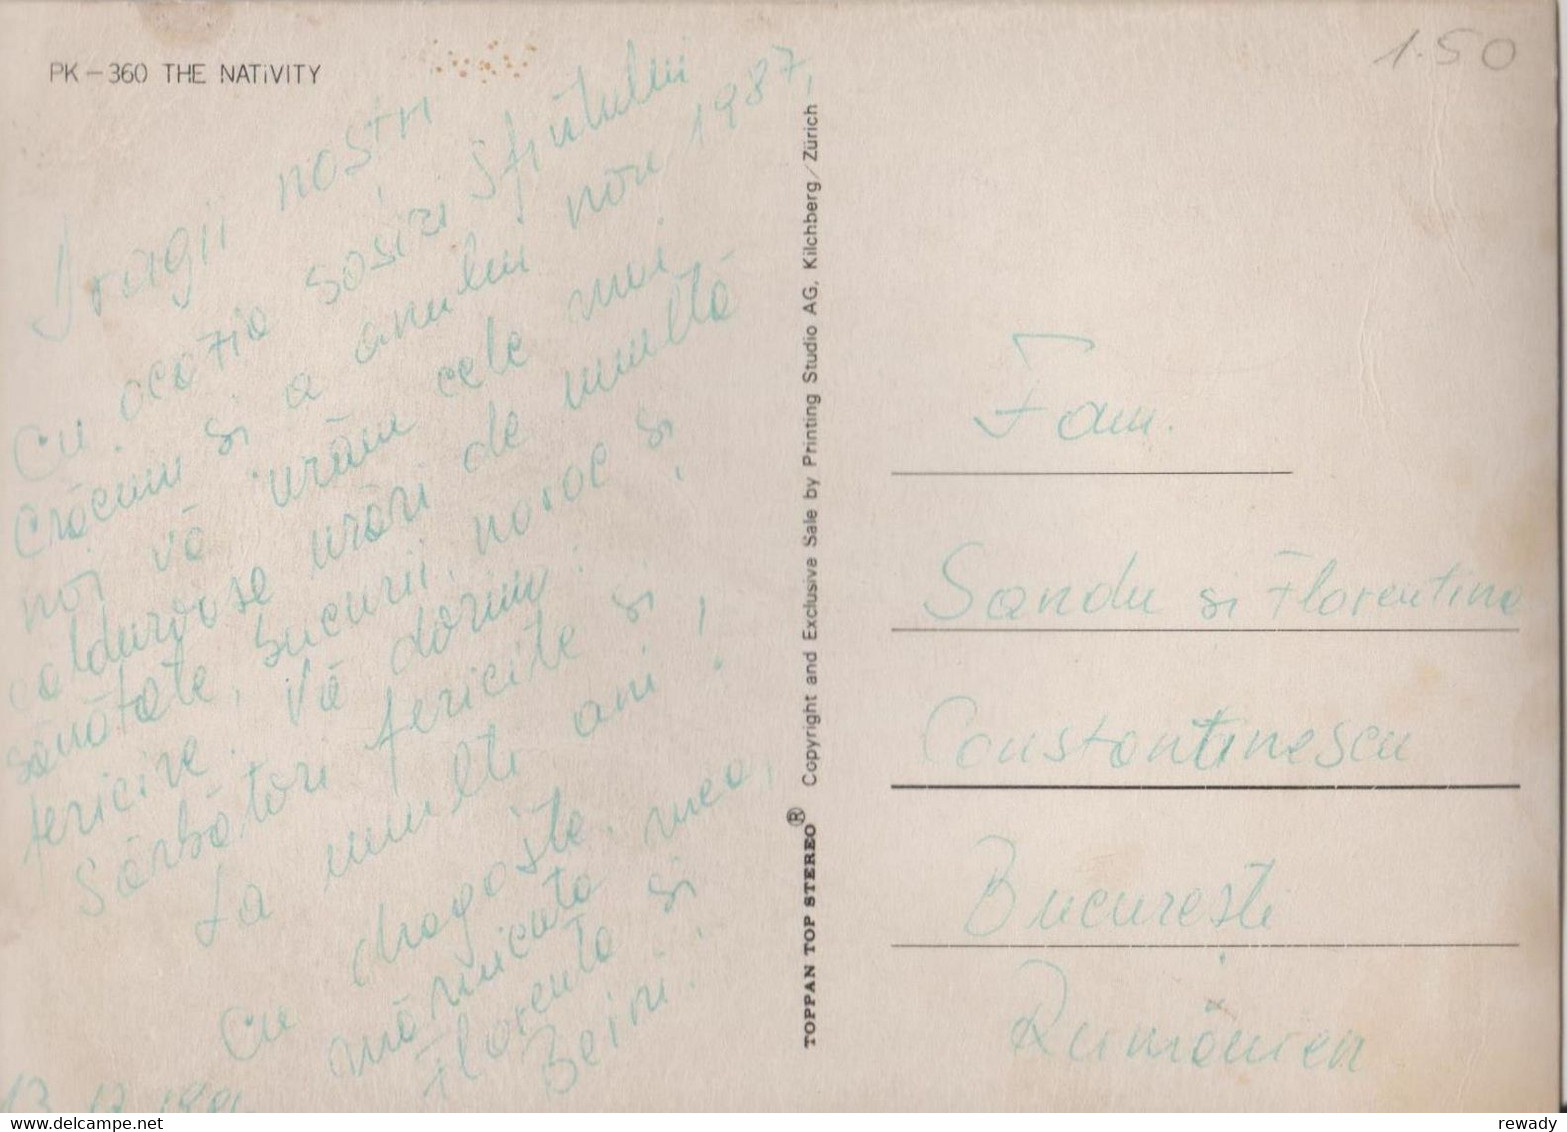 PK – 360 THE NATiVITY
1.50
Dragii noștri
Cu ocazia sosirii Sfîntului
Crăciun și a anului nou 1987,
noi vă urăm cele mai
călduroase urări de multă
sănătate, bucurii, noroc și
fericire. Vă dorim:
Sărbători fericite și
La mulți ani!
Cu dragoste, mea,
mămicuța
Florența și
TOPPAN TOP STEREO® Copyright and Exclusive Sale by Printing Studio AG, Kilchberg/Zürich
Fam.
Sandu și Florentina
Constantinescu
București
Rumänien
delcampe.net
rewady